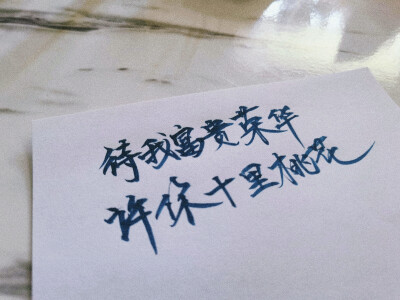 待我富贵荣华
许你十里桃花